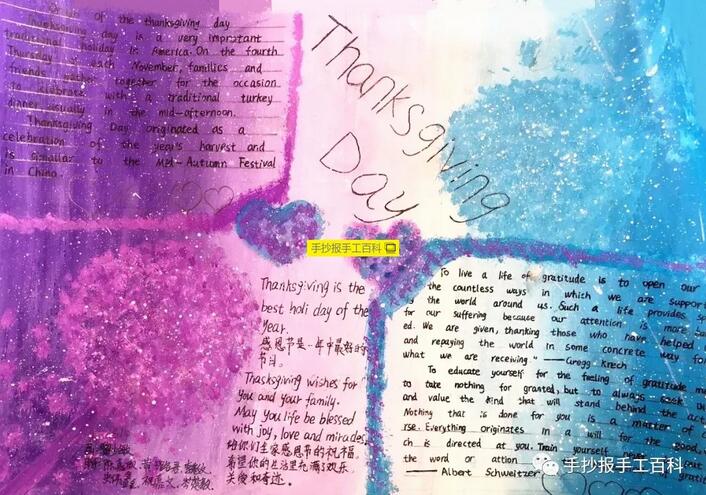 of the thanksgiving day
Thanksgiving day is a very important
traditional holiday in America. On the fourth
Thursday of each November, families and
friends gather together for the occasion
to celebrate with a traditional turkey
dinner usually in the mid-afternoon.
Thanksgiving Day originated as a
celebration of the year's harvest and
is similar to the Mid-Autumn Festival
in China.
Thanksgiving
Day
手抄报手工百科
Thanksgiving is the
best holi day of the
year.
感恩节是一年中最好的
节日。
Thanksgiving wishes for
you and your family.
May you life be blessed
with joy, love and miracles,
给你们全家感恩节的祝福,
希望你的生活里充满了欢乐、
关爱和奇迹。
To live a life of gratitude is to open our
the countless ways in which we are support
the world around us. Such a life provides
for our suffering because our attention is more
ed. We are given, thanking those who have helped
and repaying the world in some concrete way for
what we are receiving." —— Gregg Krech
To educate yourself for the feeling of gratitude
to take nothing for granted, but to always seek
and value the kind that will stand behind the act
Nothing that is done for you is a matter of
rse. Everything originates in a will for the good,
ch is directed at you. Train yourself never
the word or attion
—— Albert Schweitzer
手抄报手工百科